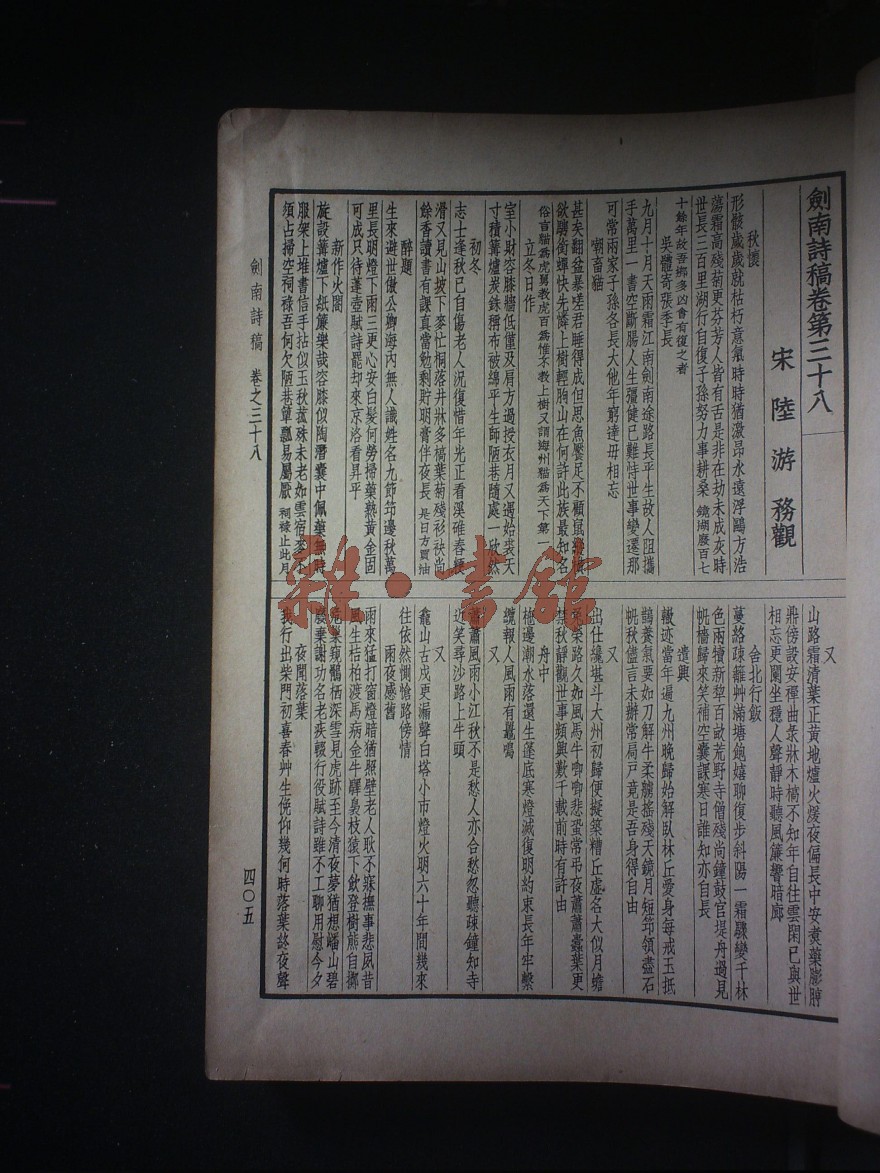 劍南詩稿卷第三十八
宋 陸 游 務觀
秋懷
形骸歲歲就枯朽意氣時時猶激昂永遠浮鷗方浩
蕩霜高殘菊更芬芳人皆有舌是非在劫未成灰時
世長三百里湖行自復子孫努力事耕桑 鏡湖廢百七
十餘年故吾鄉多凶會有復之者
吳體寄張季長
九月十月天雨霜江南劍南途路長平生故人阻攜
手萬里一書空斷腸人生彊健已難恃世事變遷那
可常兩家子孫各長大他年窮達毋相忘
嘲畜貓
甚矣翻盆暴嗟君睡得成但思魚饜足不顧鼠
欲騁銜蟬快先憐上樹輕朐山在何許此族最知名
俗言貓為虎舅教虎百為惟不教上樹又謂海州貓為天下第一
立冬日作
室小財容膝牆低僅及肩方過授衣月又遇始裘天
寸積篝爐炭銖稱布被綿平生師陋巷隨處一欣然
初冬
志士逢秋已自傷老人況復惜年光正看溪碓舂粳
滑又見山坡下麥忙桐落井牀多槁葉菊殘衫袂尚
餘香讀書有課真當勉剩貯明膏伴夜長 是日方買油
醉題
生來避世傲公卿海內無人識姓名九節筇邊秋萬
里長明燈下雨三更心安白髮何勞掃藥熟黃金固
可成只待蓬壺賦詩罷却來京洛看昇平
新作火閤
旋設篝爐下紙簾樂哉容膝似陶潛囊中佩藥無時
服架上堆書信手拈似玉秋菰殊未老如雲宿麥不
須占掃空祠祿吾何欠陋巷簞瓢易屬厭 祠祿止此月
又
山路霜清葉正黃地爐火煖夜偏長中安煑藥膨脝
鼎傍設安禪曲彔牀木槁不知年自住雲閑已與世
相忘更闌坐穩人聲靜時聽風簾響暗廊
舍北行飯
蔓絡疎籬艸滿塘飽嬉聊復步斜陽一霜驟變千林
色兩犢新犂百畝荒野寺僧殘尚鐘鼓官堤舟過見
帆檣歸來笑補空囊課寒日誰知亦自長
遣興
轍迹當年遍九州晚歸始解臥林丘愛身每戒玉抵
鵲養氣要如刀解牛柔艣搖殘天鏡月短筇領盡石
帆秋儘言未辦常扃戸竟是吾身得自由
又
出仕纔堪斗大州初歸便擬築糟丘虛名大似月蟾
兔榮路久如風馬牛唧唧悲蛩常弔夜蕭蕭蠹葉更
禁秋靜觀世事頻興歎千載前時有許由
舟中
極邊潮水落還生蓬底寒燈滅復明約束長年牢繫
纜報人風雨有鼉鳴
又
蕭蕭風雨小江秋不是愁人亦合愁忽聽疎鐘知寺
近笑尋沙路上牛頭
又
龕山古戍更漏聲白塔小市燈火明六十年間幾來
往依然惻愴路傍情
雨夜感舊
雨來猛打窗燈暗猶照壁老人耿不寐撫事悲夙昔
風生桔柏渡馬病金牛驛裊枝猿下飲登樹熊自擲
巢窺鶻栖深雪見虎跡至今清夜夢猶想嶓山碧
廢棄謝功名老疾輟行役賦詩雖不工聊用慰今夕
夜聞落葉
我行出柴門初喜春艸生俛仰幾何時落葉終夜聲
劍南詩稿 卷之三十八
四〇五
雜·書館